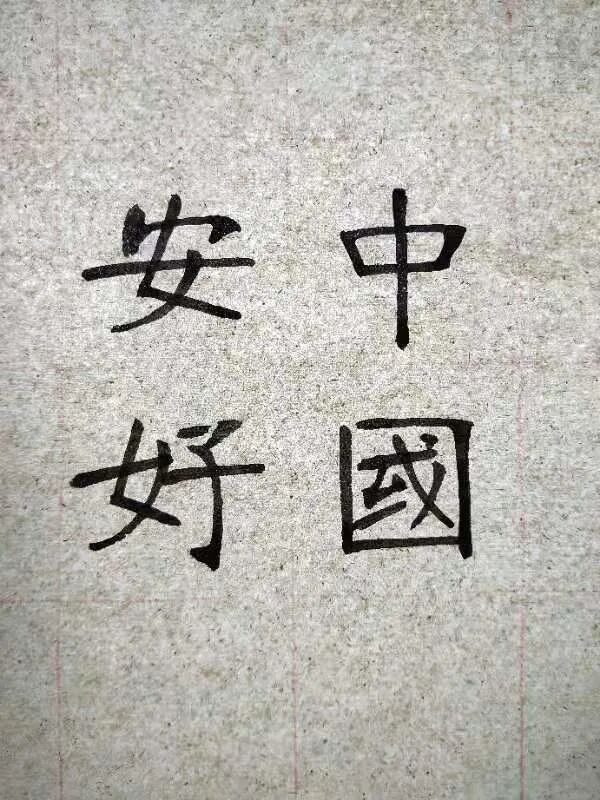 中國
安好